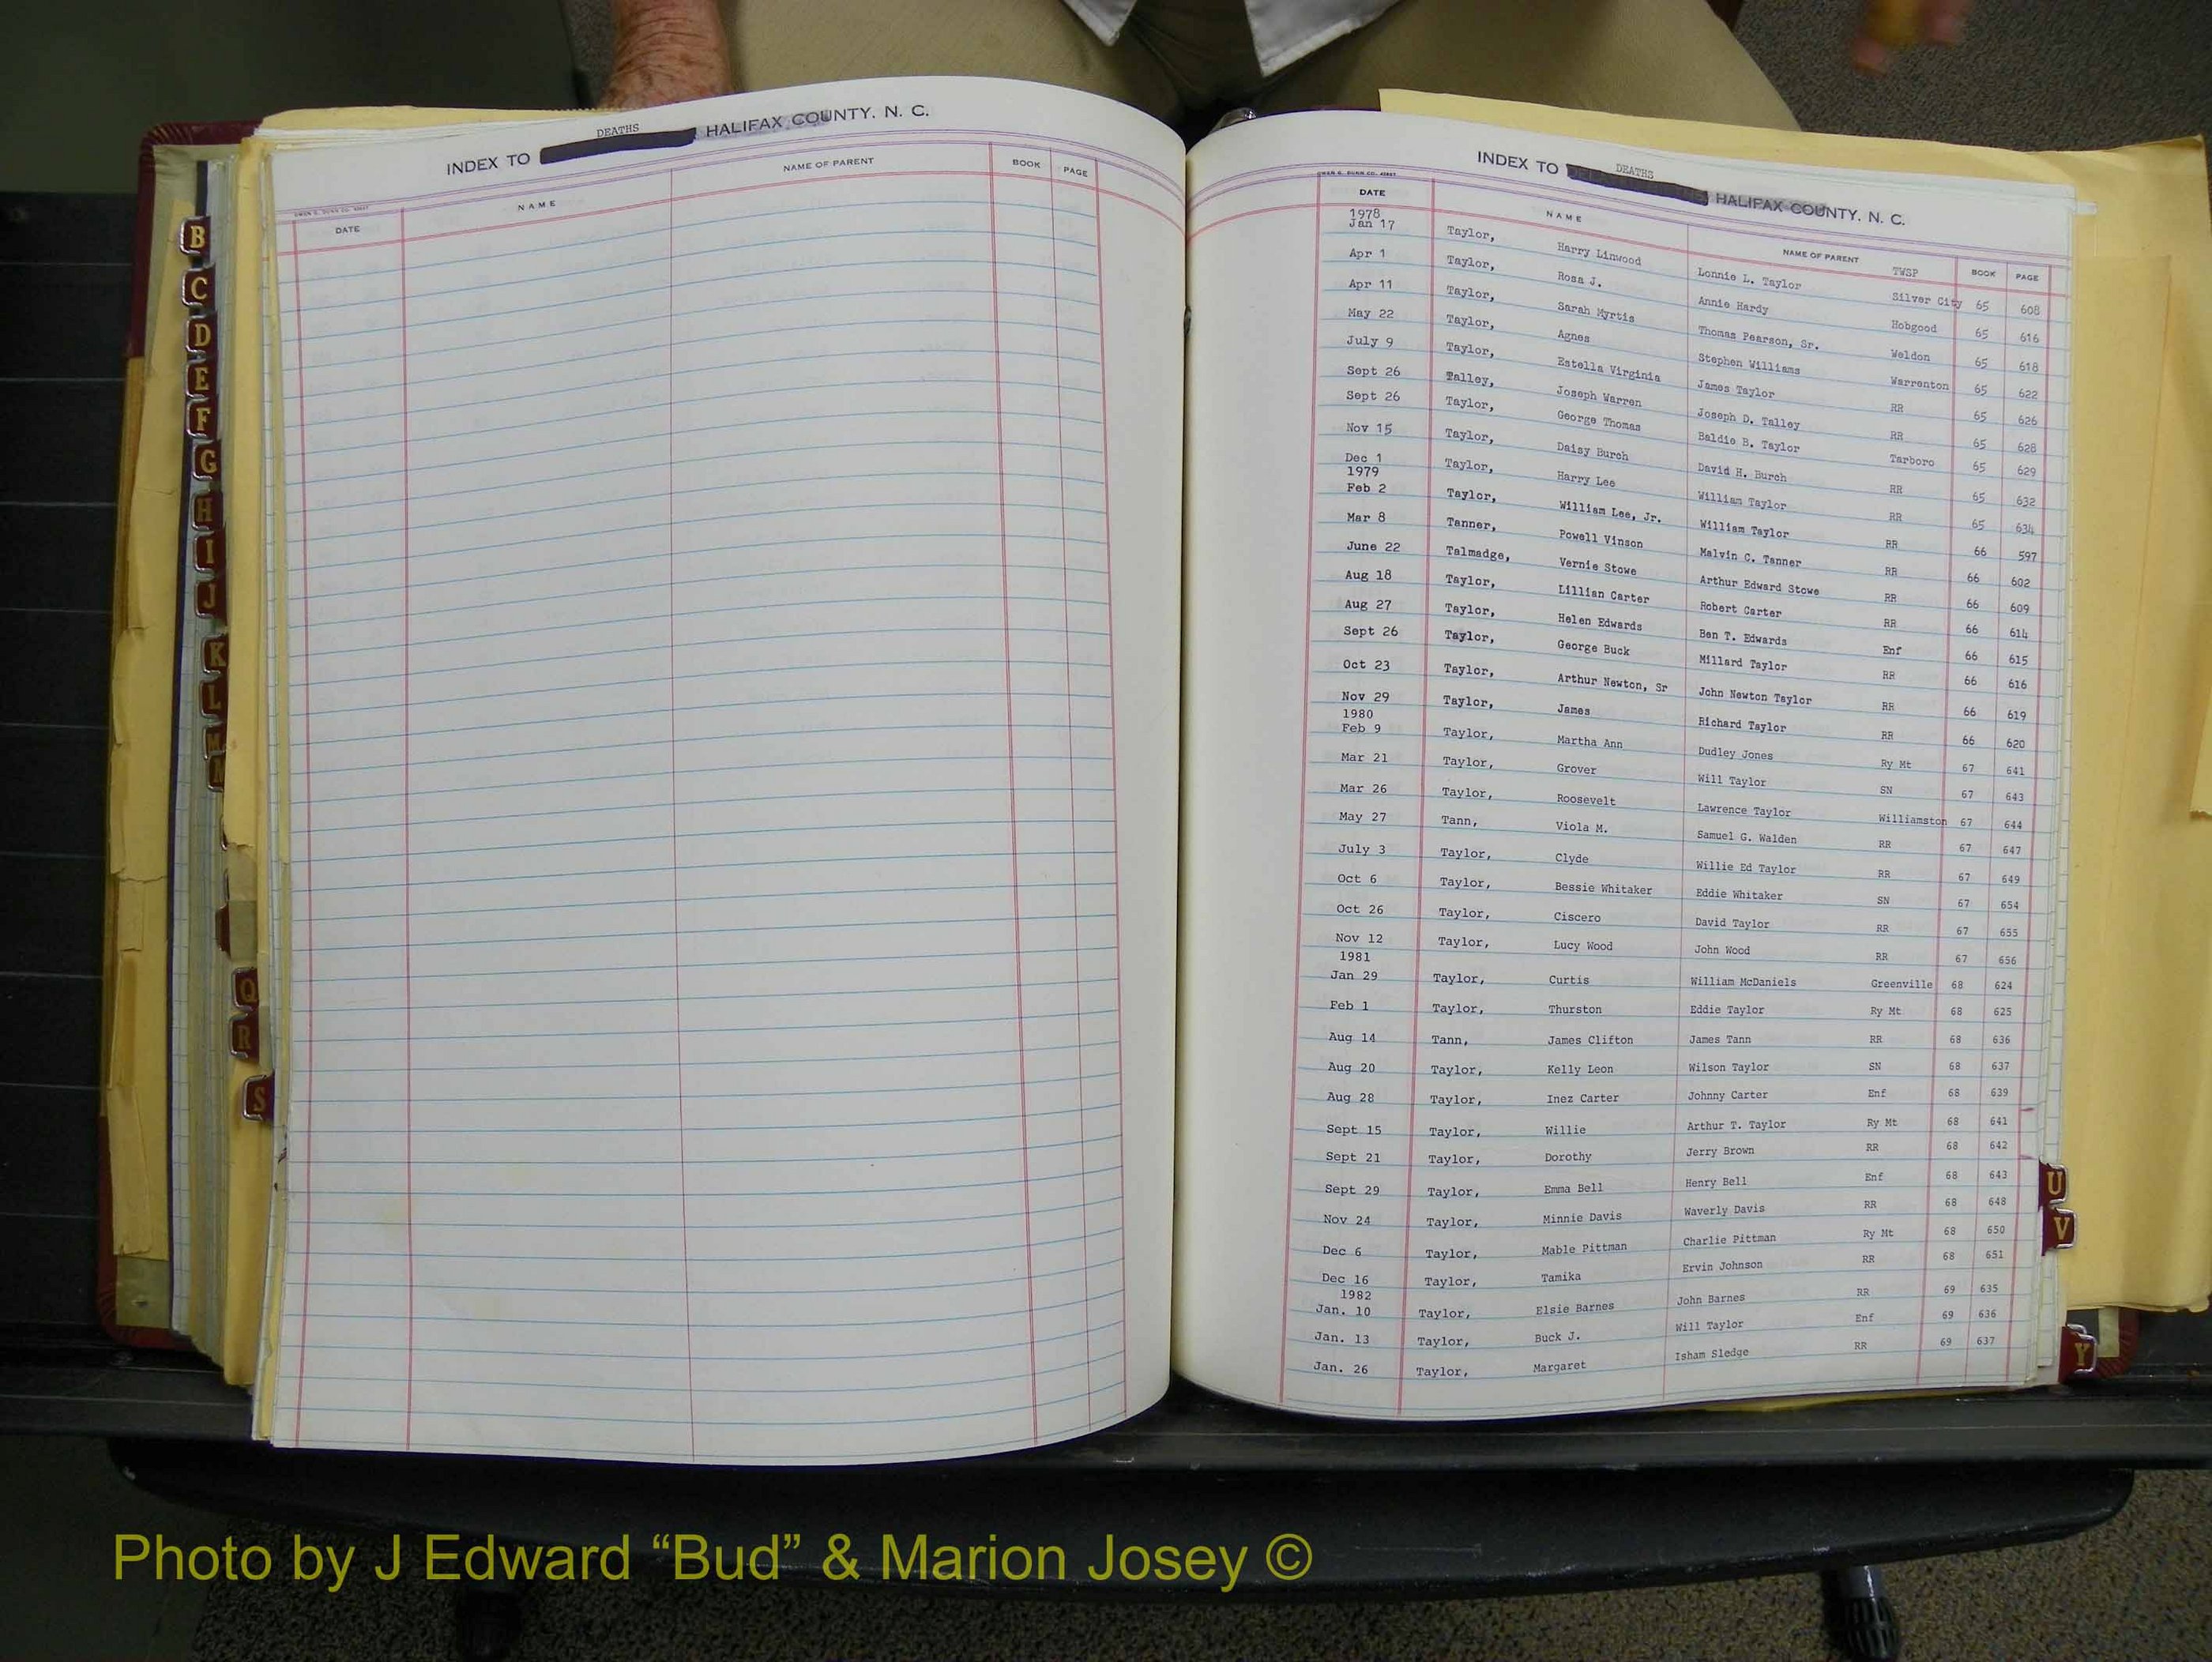 DEATHS
INDEX TO HALIFAX COUNTY. N. C.
OWEN G. DUNN CO.
DATE NAME NAME OF PARENT BOOK PAGE
B
C
D
E
F
G
H
I
J
K
L
M
N
Q
R
S
DEATHS
INDEX TO HALIFAX COUNTY. N. C.
OWEN G. DUNN CO.
DATE NAME NAME OF PARENT TWSP BOOK PAGE
1978
Jan 17 Taylor, Harry Linwood Lonnie L. Taylor Silver City 65 608
Apr 1 Taylor, Rosa J. Annie Hardy Hobgood 65 616
Apr 11 Taylor, Sarah Myrtis Thomas Pearson, Sr. Weldon 65 618
May 22 Taylor, Agnes Stephen Williams Warrenton 65 622
July 9 Taylor, Estella Virginia James Taylor RR 65 626
Sept 26 Talley, Joseph Warren Joseph D. Talley RR 65 628
Sept 26 Taylor, George Thomas Baldie B. Taylor Tarboro 65 629
Nov 15 Taylor, Daisy Burch David H. Burch RR 65 632
Dec 1 Taylor, Harry Lee William Taylor RR 65 634
1979
Feb 2 Taylor, William Lee, Jr. William Taylor RR 66 597
Mar 8 Tanner, Powell Vinson Malvin C. Tanner RR 66 602
June 22 Talmadge, Vernie Stowe Arthur Edward Stowe RR 66 609
Aug 18 Taylor, Lillian Carter Robert Carter RR 66 614
Aug 27 Taylor, Helen Edwards Ben T. Edwards Enf 66 615
Sept 26 Taylor, George Buck Millard Taylor RR 66 616
Oct 23 Taylor, Arthur Newton, Sr John Newton Taylor RR 66 619
Nov 29 Taylor, James Richard Taylor RR 66 620
1980
Feb 9 Taylor, Martha Ann Dudley Jones Ry Mt 67 641
Mar 21 Taylor, Grover Will Taylor SN 67 643
Mar 26 Taylor, Roosevelt Lawrence Taylor Williamston 67 644
May 27 Tann, Viola M. Samuel G. Walden RR 67 647
July 3 Taylor, Clyde Willie Ed Taylor RR 67 649
Oct 6 Taylor, Bessie Whitaker Eddie Whitaker SN 67 654
Oct 26 Taylor, Ciscero David Taylor RR 67 655
Nov 12 Taylor, Lucy Wood John Wood RR 67 656
1981
Jan 29 Taylor, Curtis William McDaniels Greenville 68 624
Feb 1 Taylor, Thurston Eddie Taylor Ry Mt 68 625
Aug 14 Tann, James Clifton James Tann RR 68 636
Aug 20 Taylor, Kelly Leon Wilson Taylor SN 68 637
Aug 28 Taylor, Inez Carter Johnny Carter Enf 68 639
Sept 15 Taylor, Willie Arthur T. Taylor Ry Mt 68 641
Sept 21 Taylor, Dorothy Jerry Brown RR 68 642
Sept 29 Taylor, Emma Bell Henry Bell Enf 68 643
Nov 24 Taylor, Minnie Davis Waverly Davis RR 68 648
Dec 6 Taylor, Mable Pittman Charlie Pittman Ry Mt 68 650
Dec 16 Taylor, Tamika Ervin Johnson RR 68 651
1982
Jan. 10 Taylor, Elsie Barnes John Barnes RR 69 635
Jan. 13 Taylor, Buck J. Will Taylor Enf 69 636
Jan. 26 Taylor, Margaret Isham Sledge RR 69 637
U
V
Y
Photo by J Edward “Bud” & Marion Josey ©